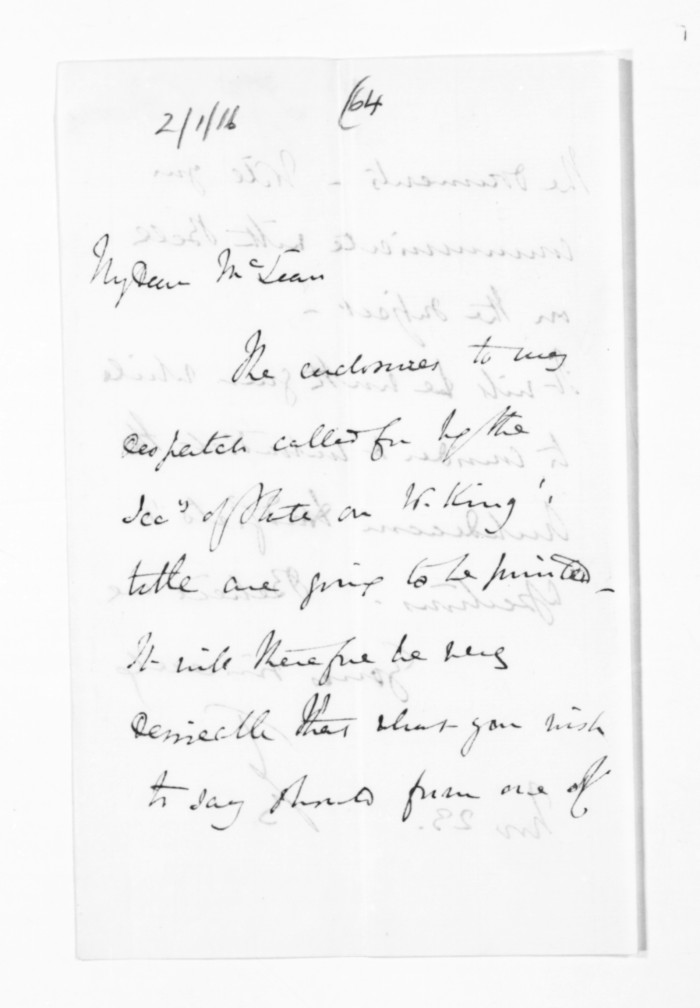 2/1/16
(64
My Dear McLean
The enclosures to my
Despatch called for by the
Secy of State on W. King's
title are going to be printed -
It will therefore be very
desireable that what you wish
to say should form one of